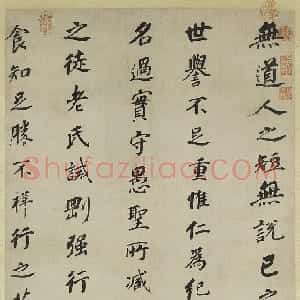 無道人之短無說己之
世譽不足重惟仁為紀
名過實守愚聖所臧
之徒老氏誡剛強行
食知足勝不祥行之
Shufaziliao.com